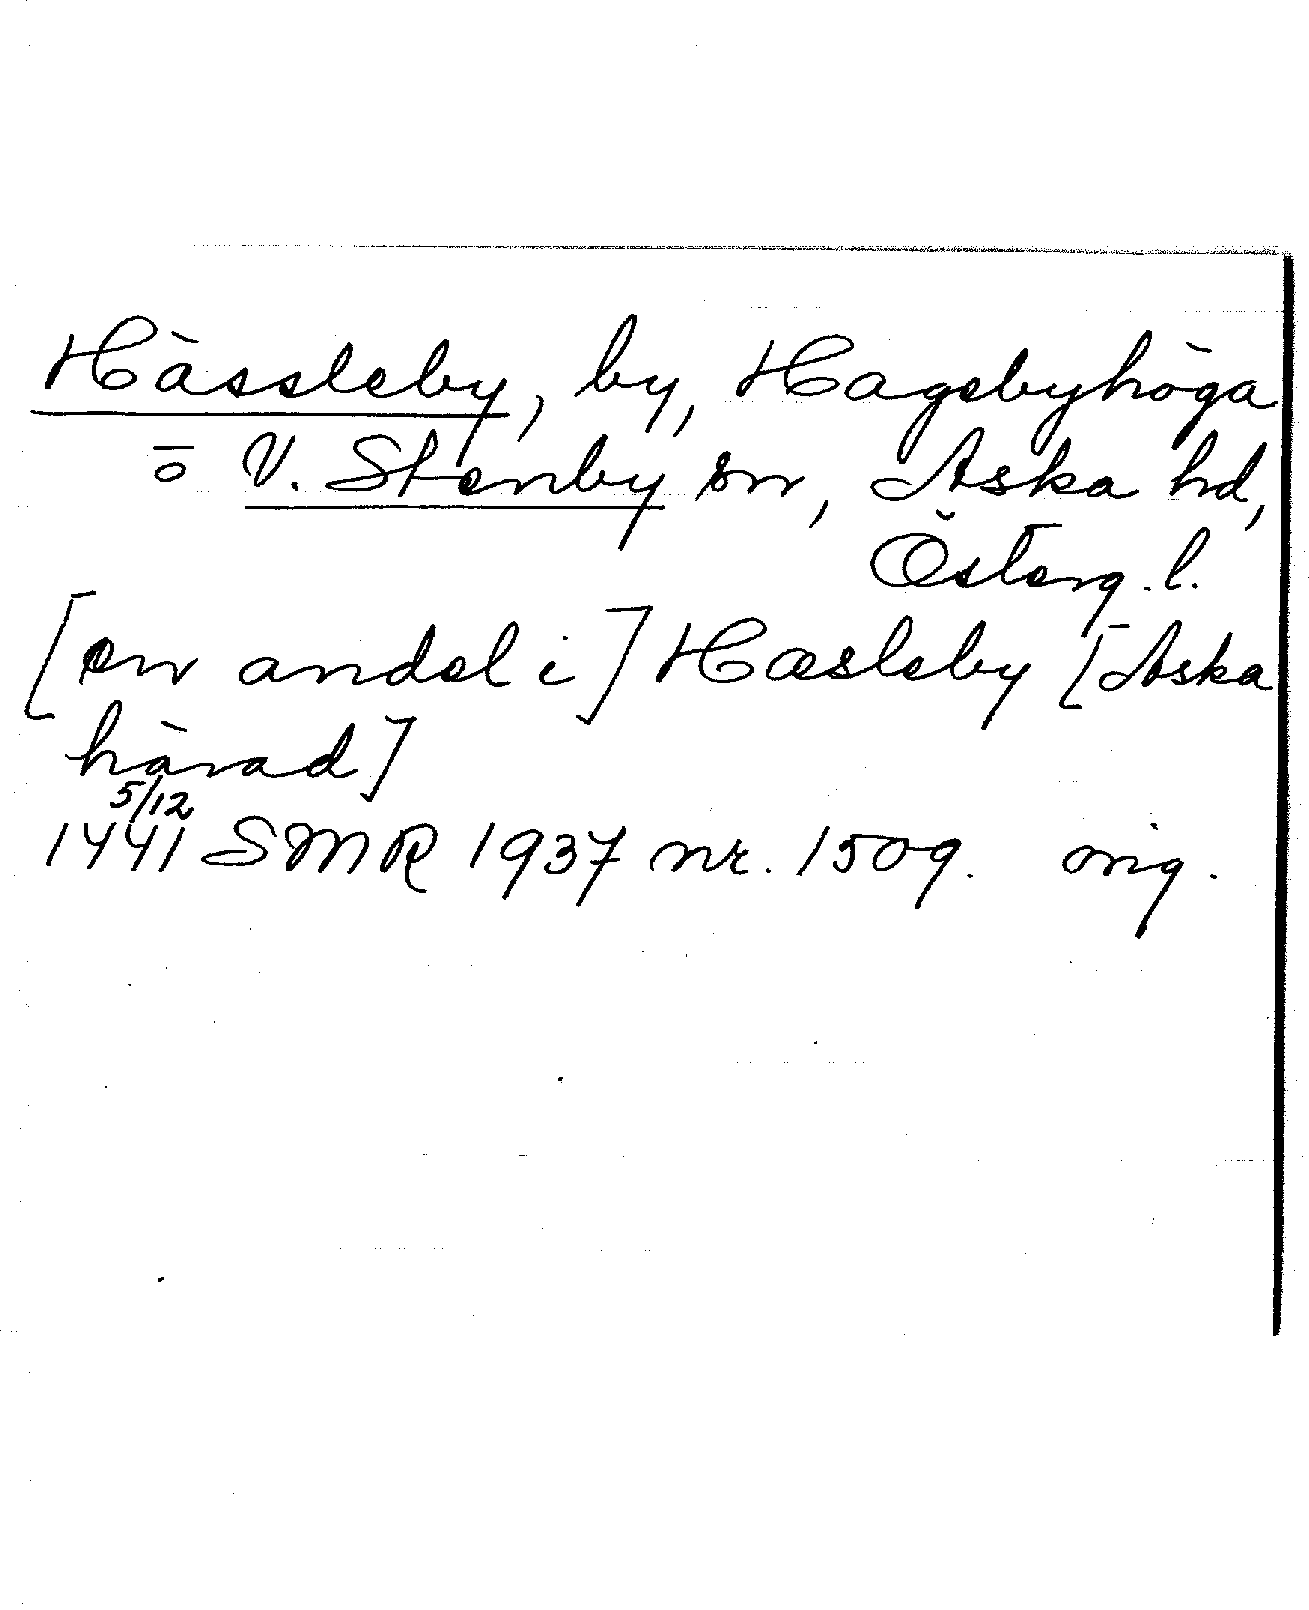 Hässleby, by, Hagebyhöga
o V. Stenby sn, Aska hd,
Österg. l.
[en andel i] Hæsleby [Aska
härad]
5/12
1441 SMR 1937 nr. 1509. orig.